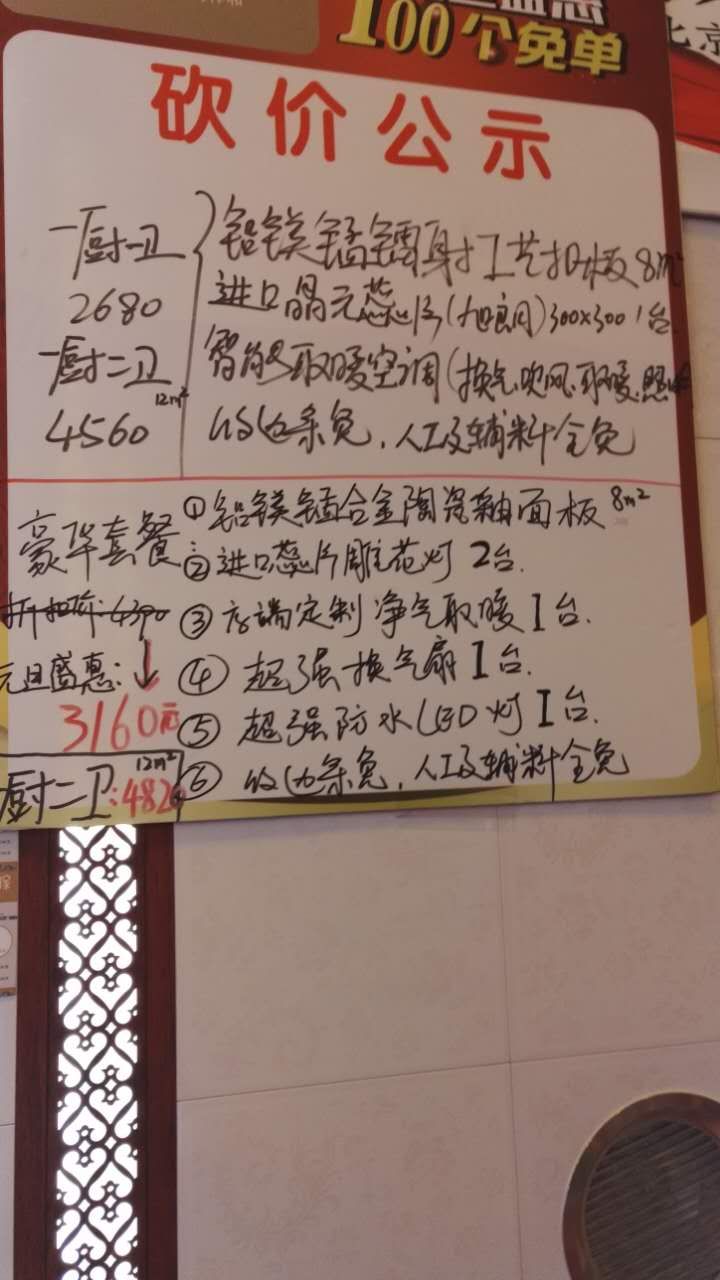 100个免单
北京
砍价公示
一厨一卫
2680
一厨二卫
12m²
4560
铝镁锰镭射工艺扣板8m²
进口晶元蕊片(旭良月)300x300 1台
智能取暖空调(换气.吹风.取暖.照
收边条免,人工及辅料全免
豪华套餐
折扣价:4390
元旦盛惠:↓
3160元
12m²
厨二卫:482
①铝镁锰合金陶瓷釉面板 8m²
②进口蕊片雕花灯 2台.
③高端定制净气取暖 I台.
④超强换气扇 I台.
⑤超强防水LED灯 I台.
⑥收边条免,人工及辅料全免